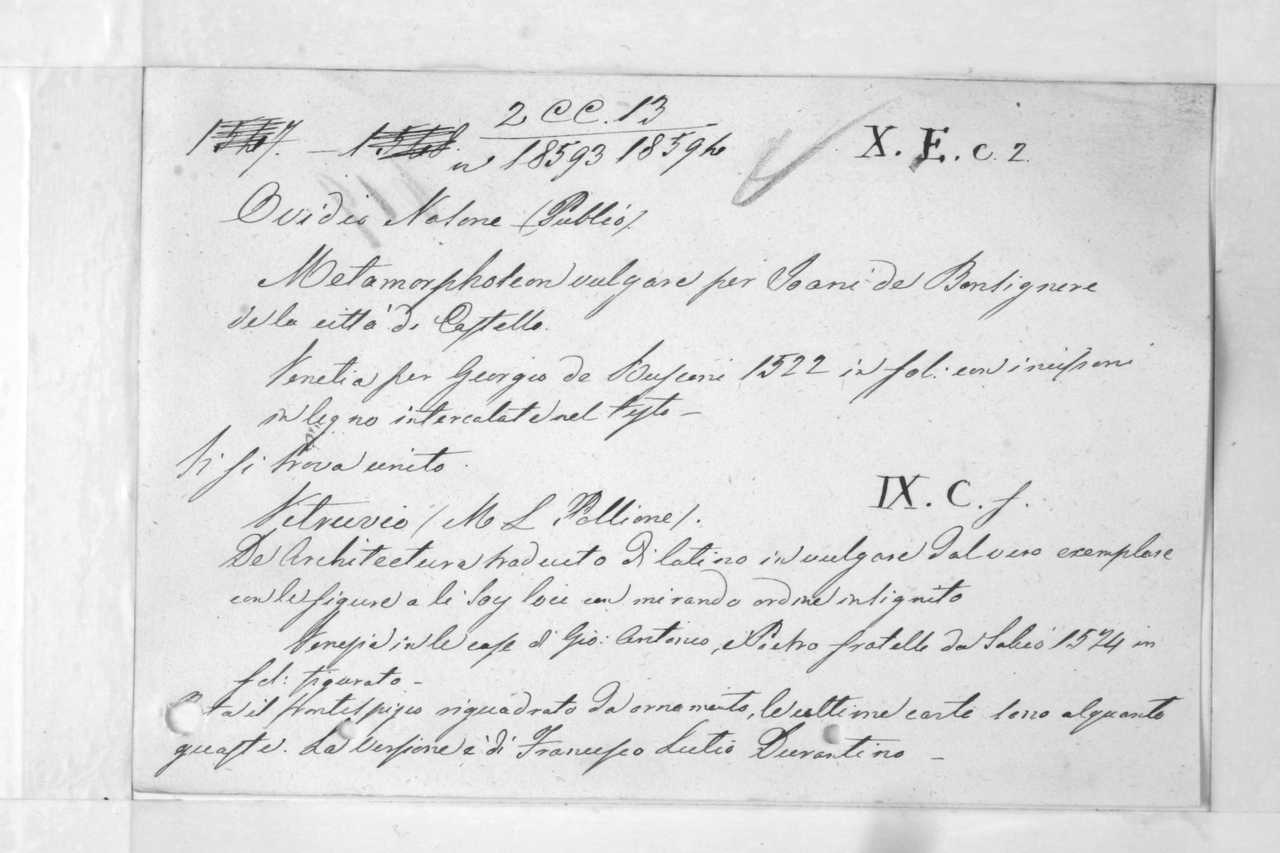 2 CC. 13
1567. — 1568. n 18593 18594
X. E. c. 2.
Ovidio Nasone (Publio).
Metamorphoseon vulgare per Joani de Bonsignere
de la città di Castello.
Venetia per Georgio de Rusconi 1522 in fol: con incisioni
in legno intercalate nel testo —
Vi si trova unito.
IX. C. f.
Vitruvio (M L Pollione).
De Architectura traducto di latino in vulgare dal vero exemplare
con le figure a li soy loci con mirando ordine insignito
Venezia in le case di Gio: Antonio, e Pietro fratello da Sabio 1524 in
fol: figurato —
il frontispizio riquadrato da ornamento, le ultime carte sono alquanto
guaste. La versione è di Francesco Lutio Durantino —